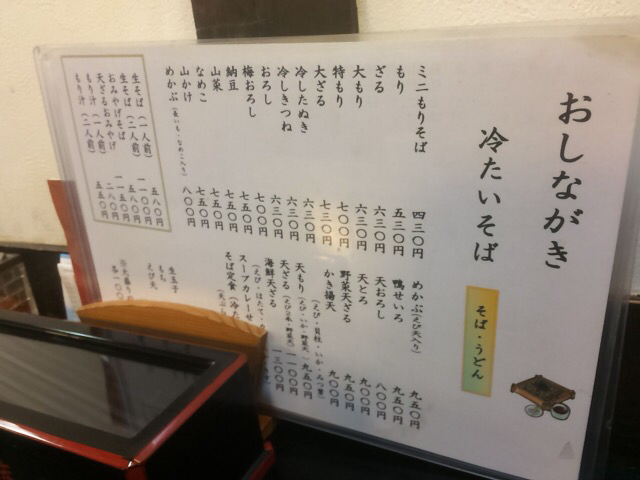 おしながき
冷たいそば
そば・うどん
ミニもりそば 四三〇円
もり 五三〇円
ざる 六三〇円
大もり 六三〇円
特もり 七〇〇円
大ざる 七三〇円
冷したぬき 六三〇円
冷しきつね 六三〇円
おろし 六三〇円
梅おろし 七〇〇円
納豆 七五〇円
山菜 七五〇円
なめこ 七五〇円
山かけ 七五〇円
めかぶ（長いも・なめこ入り） 八〇〇円
めかぶ（えび天入り） 九五〇円
鴨せいろ 九五〇円
天おろし 八〇〇円
天とろ 九〇〇円
野菜天ざる 九五〇円
かき揚天 九〇〇円
（えび・貝柱・いか・みつ葉）
天もり（えび・いか・野菜天） 九五〇円
天ざる（えび2本・野菜天） 一一〇〇円
海鮮天ざる 一三〇〇円
（えび・ほたて・
スープカレーせ
そば定食（冷た
生玉子
もち
えび天
生そば（一人前） 五八〇円
生そば（二人前） 一一〇〇円
おみやげそば 五八〇円
天ざるおみやげ 一一五〇円
もり汁（一人前） 二八〇円
もり汁（二人前） 五五〇円